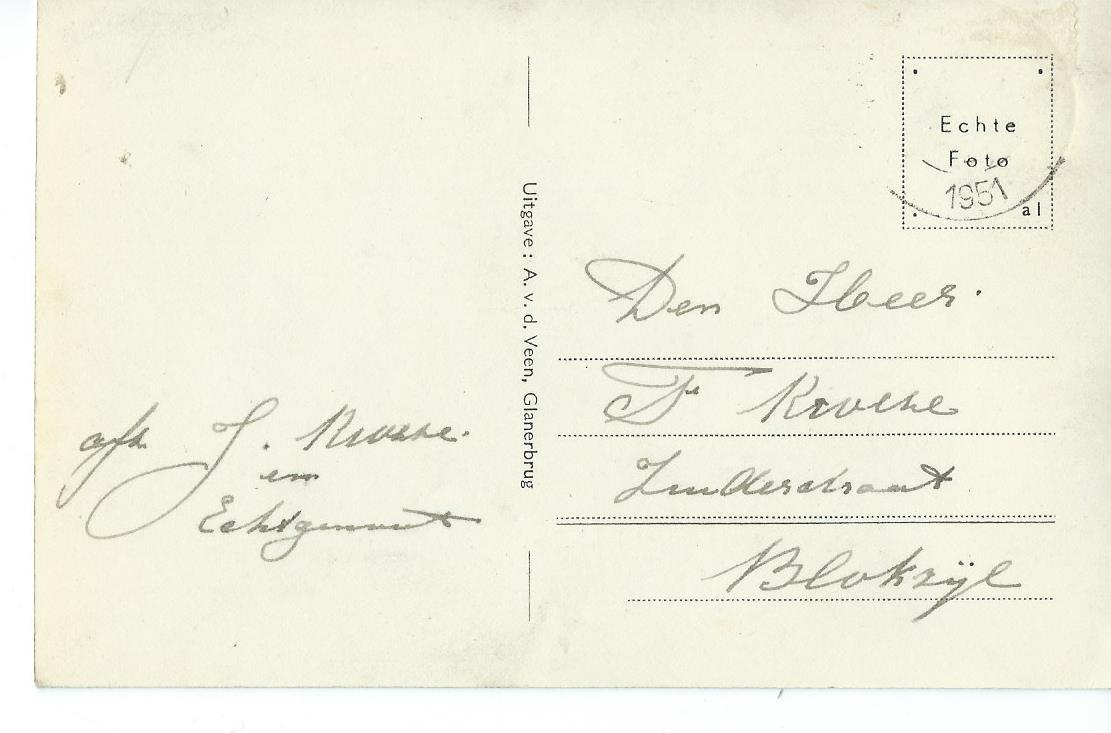 afz. J. Kroeze.
en
Echtgenoot
Uitgave: A. v. d. Veen, Glanerbrug
Echte
Foto
1951
al
Den Heer.
F Kroeze
Zuiderstraat
Blokzijl